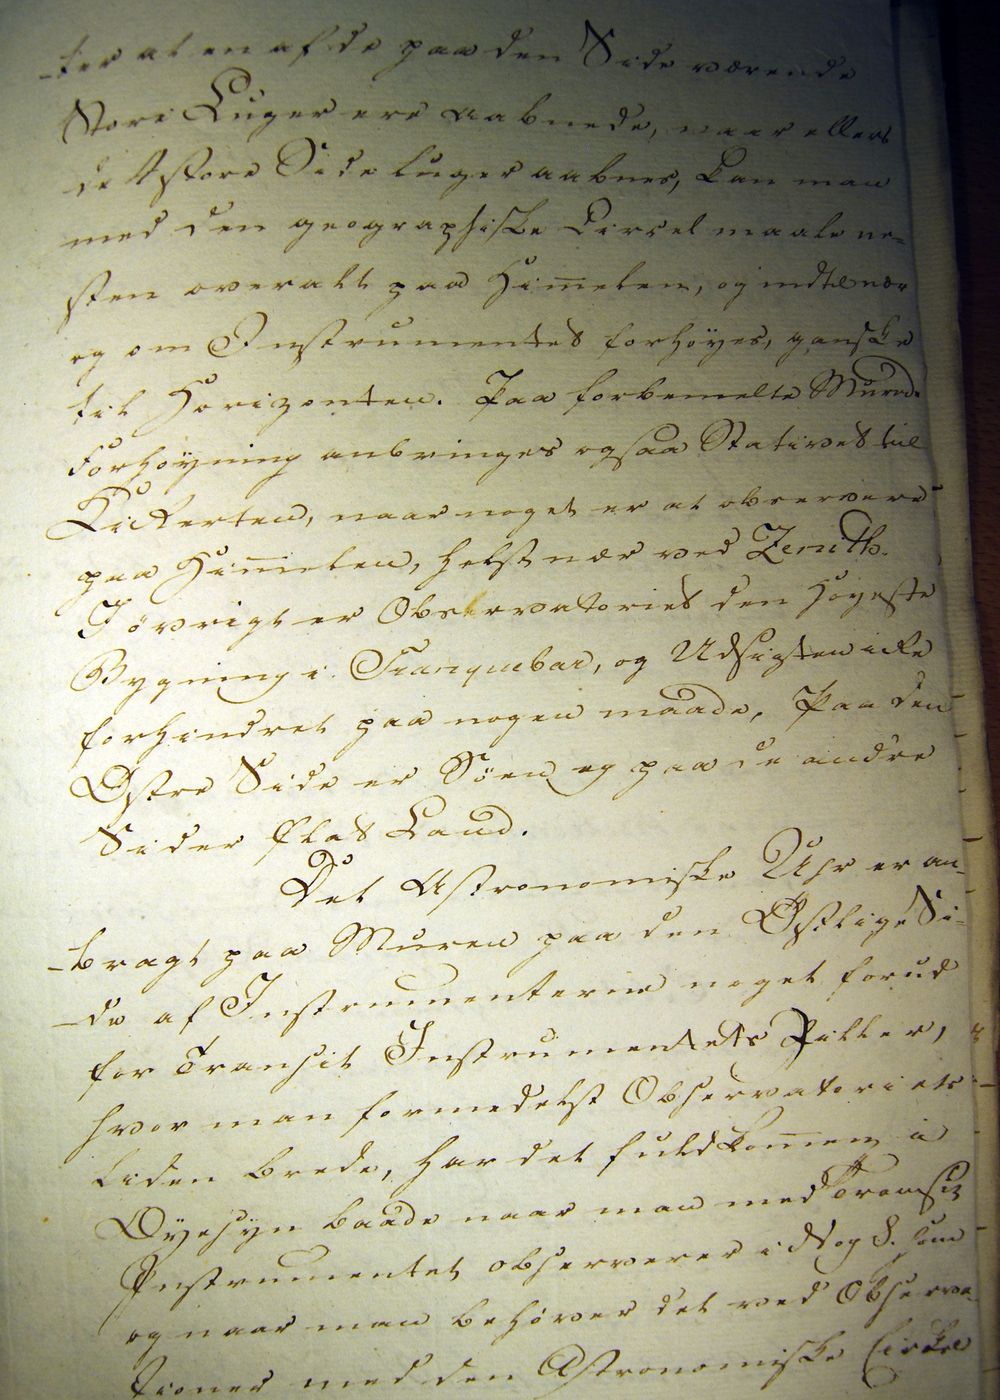 -ter at en af de paa den Side værende
Store Luger ere aabnede, naar ellers
de store Side luger aabnes, kan man
med den geographiske Circel maale ne=
sten overalt paa Him̅elen, og indtil nær
og om Instrumentet forhöyes, ganske
til Horizonten. Paa forbemelte Mured=
Forhöyning anbringes ogsaa Stativet til
Kickerten, naar noget er at observere
paa Him̅elen, helst nær ved Zenith.
I övrigt er Observatoriet den höyeste
Bygning i Tranquebar, og Udsigten icke
forhindret paa nogen maade, Paa den
Östre Side er Söen og paa de andre
Sider flat Land.
Det Astronomiske Uhr er an-
-bragt paa Muren paa den Östlige Si-
-de af Instrumenterne noget forud
for Transit Instrumentets Piller,
hvor man formedelst Observatoriets
liden brede, har det fuldkom̅en i
Öyesyn baade naar man med Transit
Instrumentet observerer i N og S. som
og naar man behöver det ved Observa-
tioner med den Astronomiske Cirkel